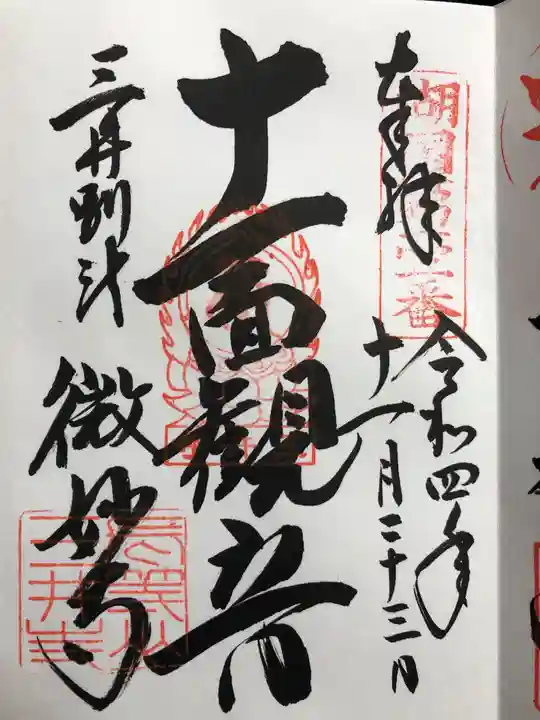 奉拝
令和四年
十一月二十三日
十一面觀音
三井別所
微妙寺